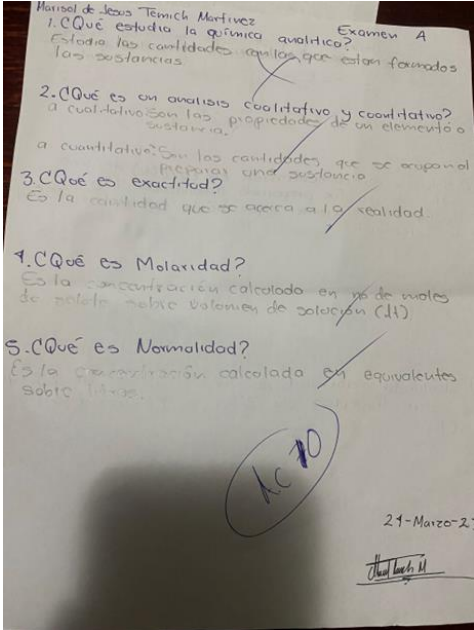 Marisol de Jesus Temich Martinez
Examen A
1. ¿Qué estudia la química analítico?
Estudia las cantidades con las que estan formados
las sustancias
2. ¿Qué es un analisis cualitativo y cuantitativo?
a cualitativo: Son las propiedades de un elemento o
sustancia.
a cuantitativo: Son las cantidades que se ocupan al
preparar una sustancia
3. ¿Qué es exactitud?
Es la cantidad que se acerca a la realidad
4. ¿Qué es Molaridad?
Es la concentración calculado en no de moles
de soluto sobre volumen de solución (lt)
5.- ¿Qué es Normalidad?
Es la concentración calculada en equivalentes
sobre litros.
Ac 10
21-Marzo-2